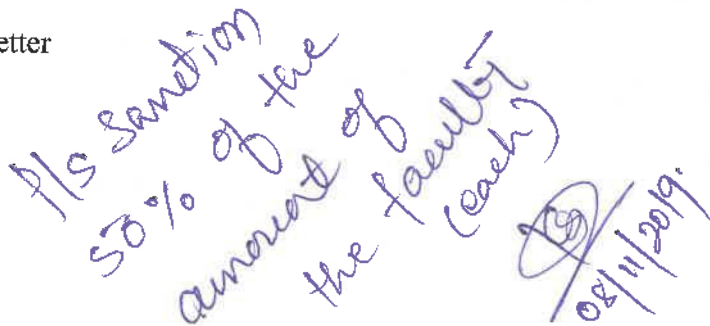 etter
P/s Sanction
50% of the
amount of
the faculty
(each)
08/11/2019.